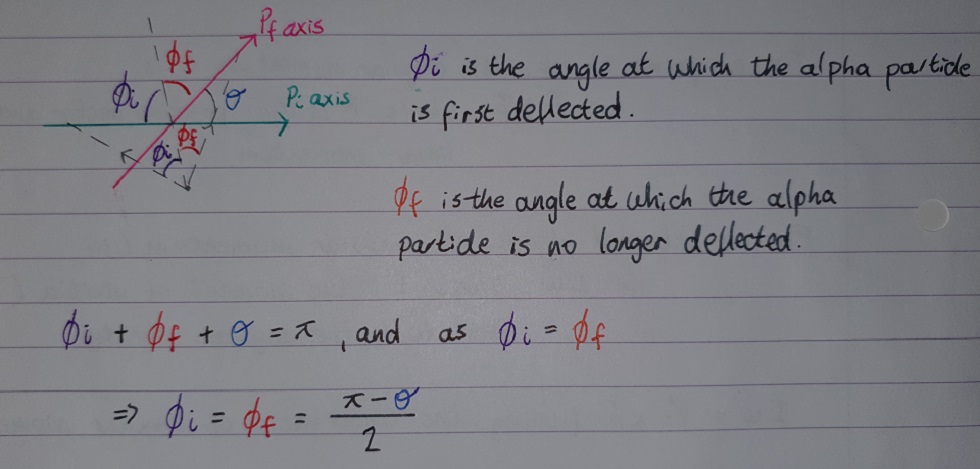 Pf axis
ϕf
ϕi
θ
Pi axis
ϕf
ϕi
ϕi is the angle at which the alpha particle
is first deflected.
ϕf is the angle at which the alpha
particle is no longer deflected.
ϕi + ϕf + θ = π , and as ϕi = ϕf
⇒ ϕi = ϕf = π-θ
2